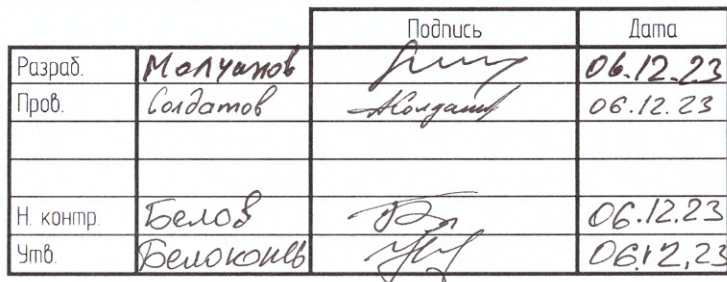 Подпись Дата
Разраб. Молчанов 06.12.23
Пров. Солдатов 06.12.23
Н. контр. Белов 06.12.23
Утв. Белоконь 06.12.23